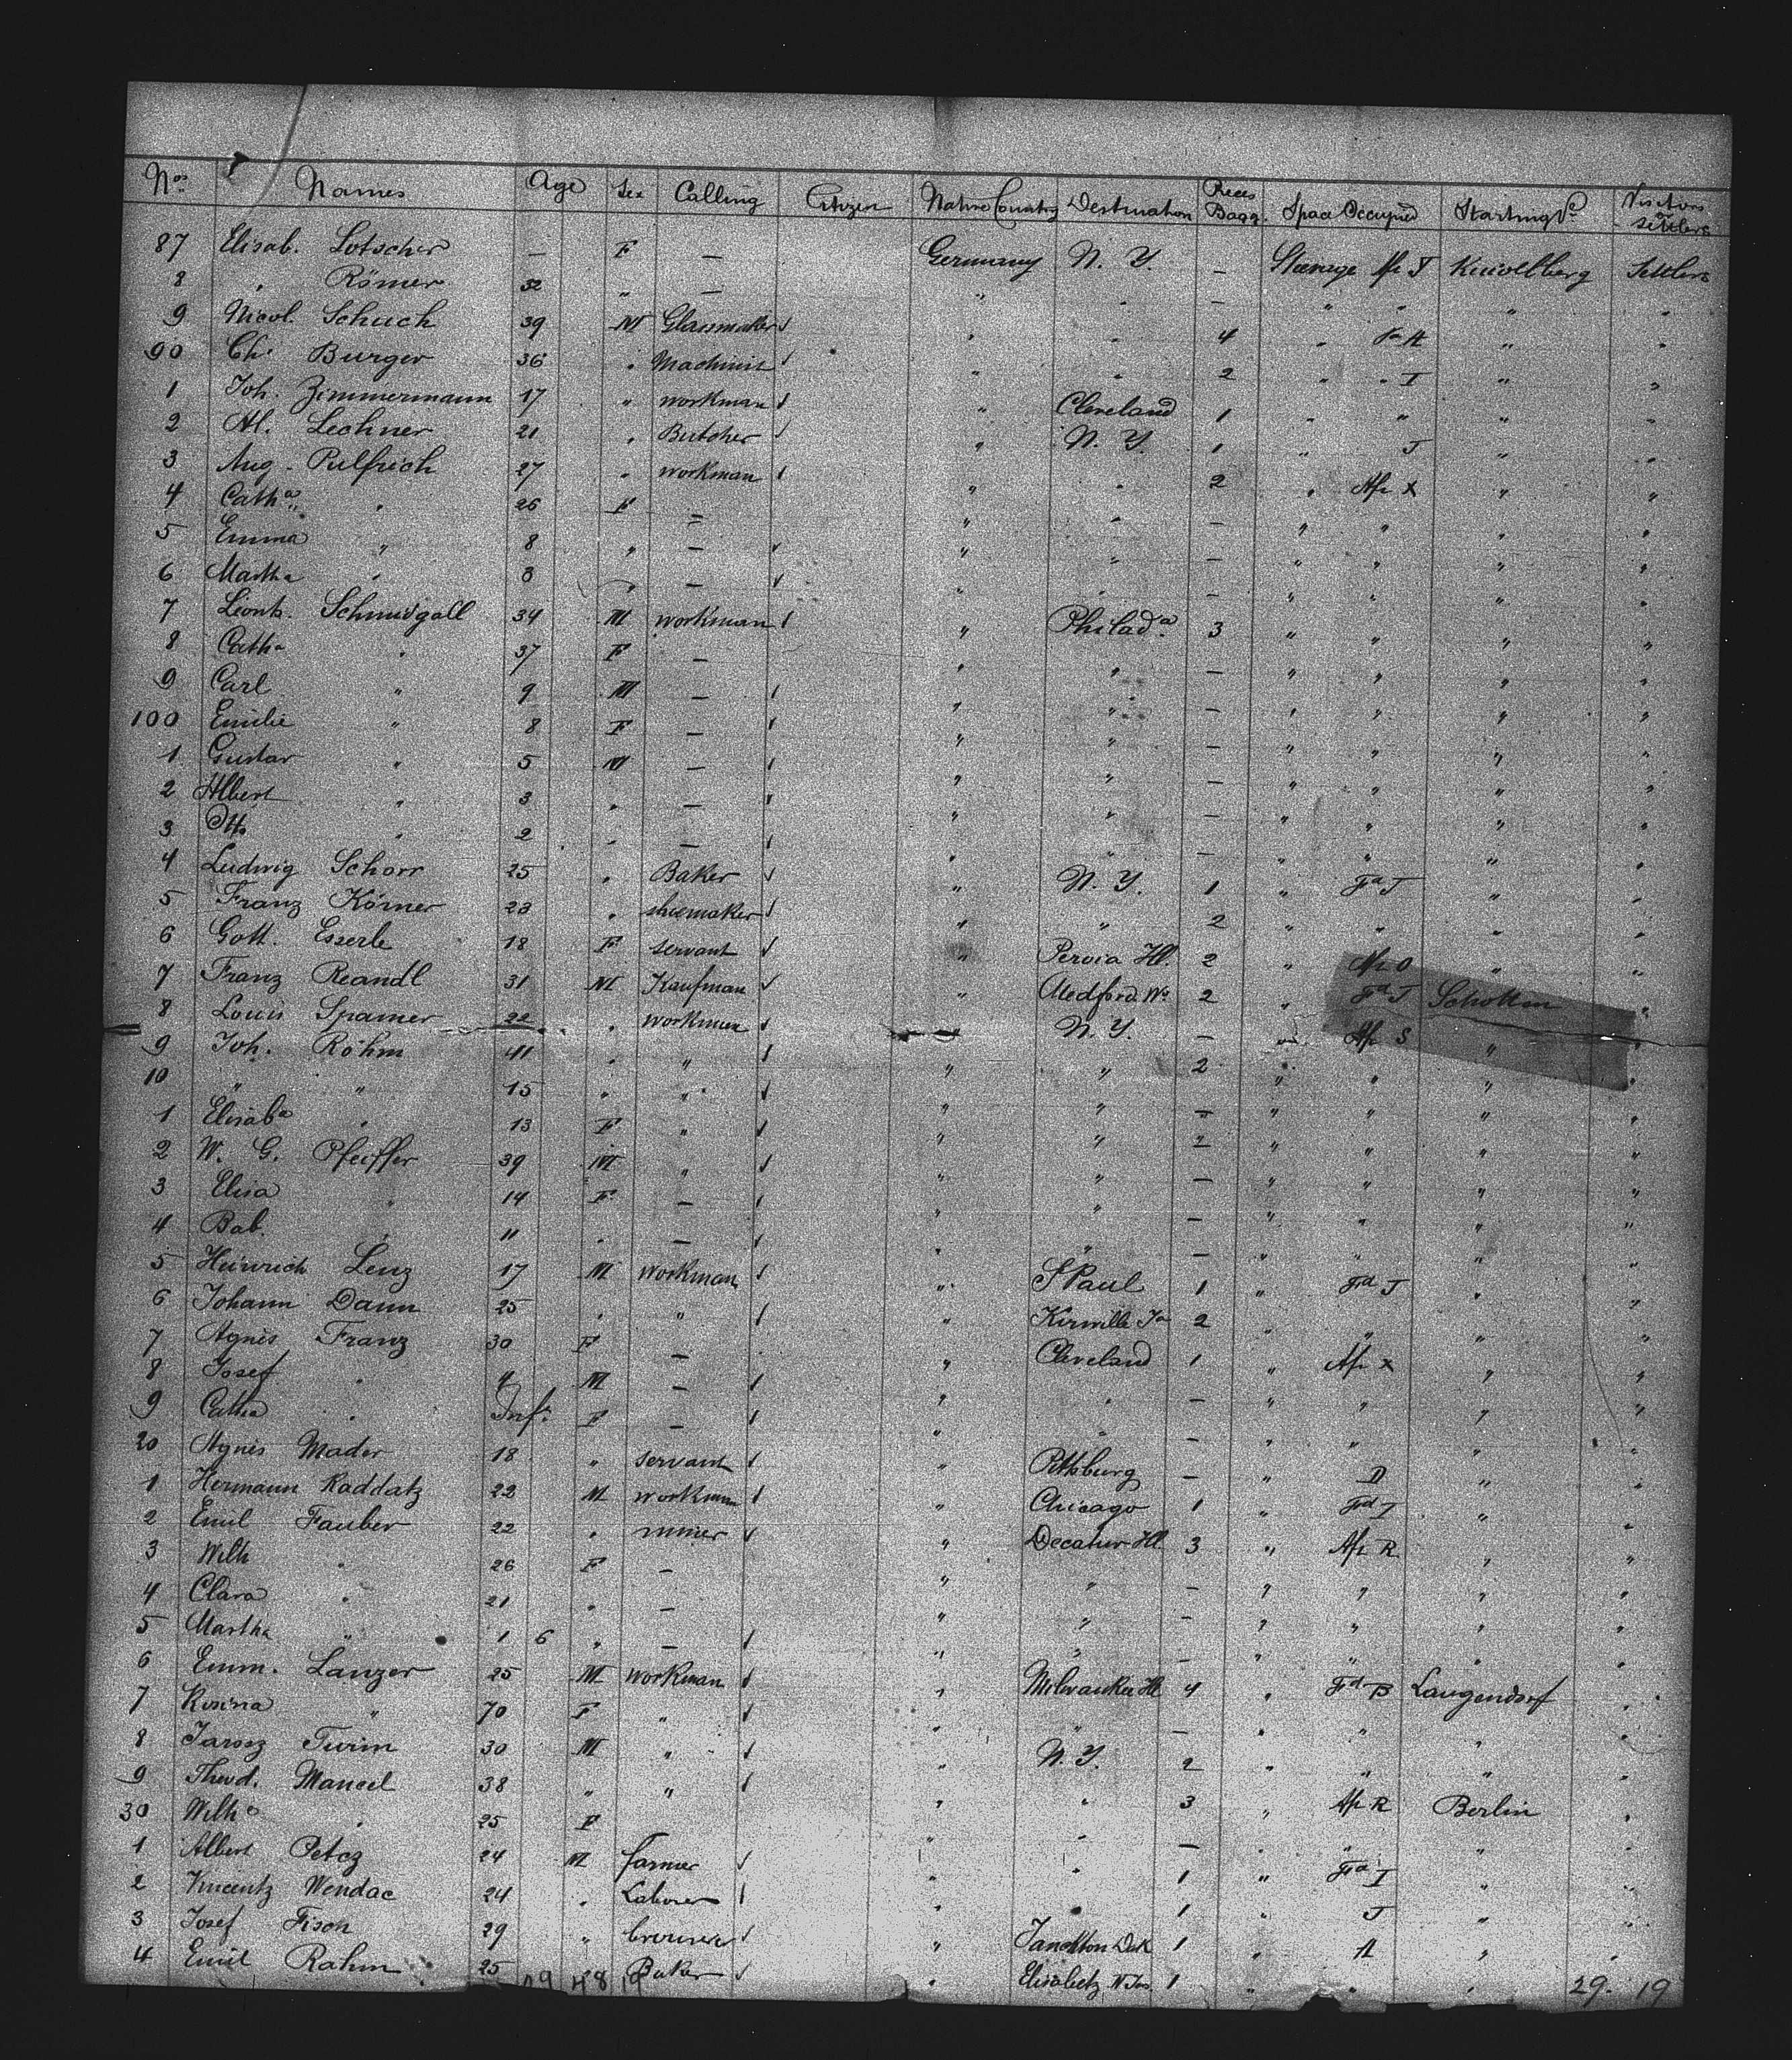 Nos Names Age Sex Calling Citizen Native Country Destination Pieces Bagg. Space Occupied Starting Pl. Visitors or Settlers
87 Elisab. Lotscher — F — Germany N. Y. — Steerage Af. J Settlers
8 " Römer 32 " — " " — " " " "
9 Nicol. Schuch 39 M Glassmaker " " 4 " Fd A " "
90 Ch. Burger 36 " Machinist " " 2 " " I " "
1 Joh. Zimmermann 17 " workman " Cleveland 1 " " " "
2 Al. Lechner 21 " Butcher " N. Y. 1 " J " "
3 Aug. Pulfrich 27 " workman " " 2 " Af. X " "
4 Catha " 26 F — " " — " " " "
5 Emma " 8 " — " " — " " " "
6 Martha " 3 " — " " — " " " "
7 Leonh. Schmidgall 34 M workman " Philada. 3 " " " "
8 Catha " 37 F — " " — " " " "
9 Carl " 9 M — " " — " " " "
100 Emilie " 8 F — " " — " " " "
1 Gustav " 5 M — " " — " " " "
2 Albert " 3 " — " " — " " " "
3 Otto " 2 " — " " — " " " "
4 Ludwig Schorr 25 " Baker " N. Y. 1 " Fd J " "
5 Franz Körner 23 " shoemaker " " 2 " " " "
6 Gott. Esserle 18 F servant " Ill. 2 " Af. O " "
7 Franz Reandl 31 M Kaufman " Medford Ws 2 " Fd J Schotten "
8 Louis Spamer 22 " workman " N. Y. — " Af. S " "
9 Joh. Röhm 41 " " " " 2 " " " "
10 " " 15 " " " " — " " " "
1 Elisaba " 13 F " " " — " " " "
2 W. G. Pfeiffer 39 M " " " — " " " "
3 Elisa " 14 F — " " — " " " "
4 Bab. " 11 " — " " — " " " "
5 Heinrich Lenz 17 M workman " St Paul 1 " Fd J " "
6 Johann Dann 25 " " " Ia 2 " " " "
7 Agnes Franz 30 F — " Cleveland 1 " Af. X " "
8 Josef " 4 M — " " — " " " "
9 Catha " Inft. F — " " — " " " "
20 Agnes Mader 18 " servant " Pittsburg — " D " "
1 Hermann Raddatz 22 M workman " Chicago 1 " Fd I " "
2 Emil Fauber 22 " miner " Decatur Ill 3 " Af. R " "
3 Wilh " 26 F — " " — " " " "
4 Clara " 21 " — " " — " " " "
5 Martha " 1 6 " — " " — " " " "
6 Emm. Lanzer 25 M workman " Milwaukee Ill 4 " Fd B Langendorf "
7 Rosina " 70 F " " " — " " " "
8 Jarosz Turim 30 M " " N. Y. 2 " " " "
9 Theod. Mancel 38 " " " " 3 " Af. R Berlin "
30 Wilha " 25 F " " — " " " "
1 Albert Petcz 24 M farmer " " 1 " Fd I " "
2 Vincentz Wendac 24 " Laborer " " 1 " J " "
3 Josef Fison 29 " brewer " Janckton Dak 1 " A " "
4 Emil Rahm 25 " Baker " 1 " " "
29. 19